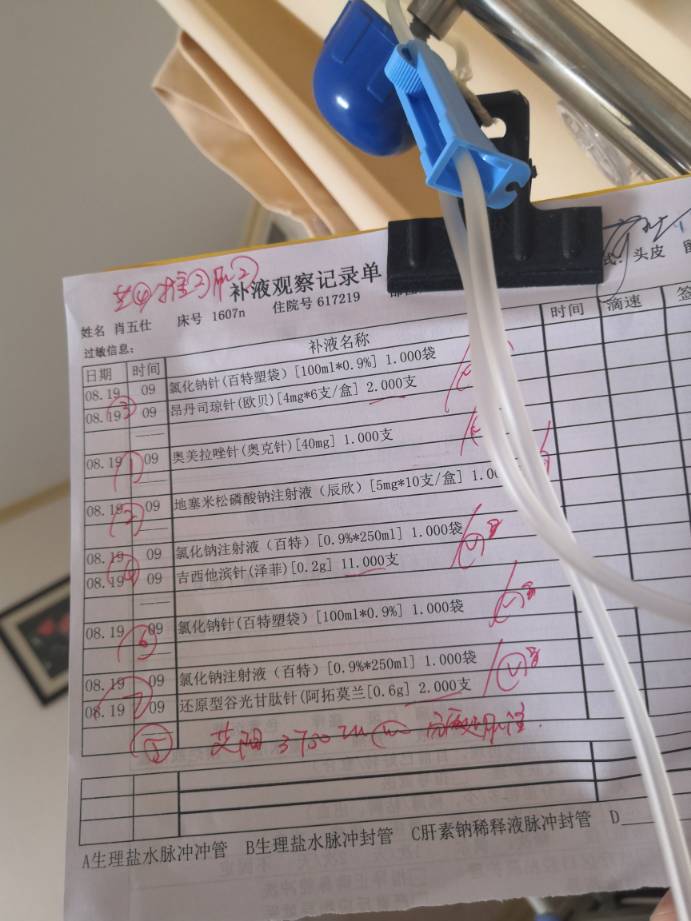 补液观察记录单
姓名 肖五仕 床号 1607n 住院号 617219
头皮
过敏信息:
日期 时间 补液名称 时间 滴速
08.19 09 氯化钠针(百特塑袋)[100ml*0.9%] 1.000袋
08.19 09 昂丹司琼针(欧贝)[4mg*6支/盒] 2.000支
③
08.19 09 奥美拉唑针(奥克针)[40mg] 1.000支
①
08.19 09 地塞米松磷酸钠注射液（辰欣）[5mg*10支/盒] 1.00
②
08.19 09 氯化钠注射液（百特）[0.9%*250ml] 1.000袋
08.19 09 吉西他滨针(泽菲)[0.2g] 11.000支
④
08.19 09 氯化钠针(百特塑袋)[100ml*0.9%] 1.000袋
⑥
08.19 09 氯化钠注射液（百特）[0.9%*250ml] 1.000袋
08.19 09 还原型谷光甘肽针(阿拓莫兰[0.6g] 2.000支
⑦
⑤ 艾阳 3750
A生理盐水脉冲冲管 B生理盐水脉冲封管 C肝素钠稀释液脉冲封管 D